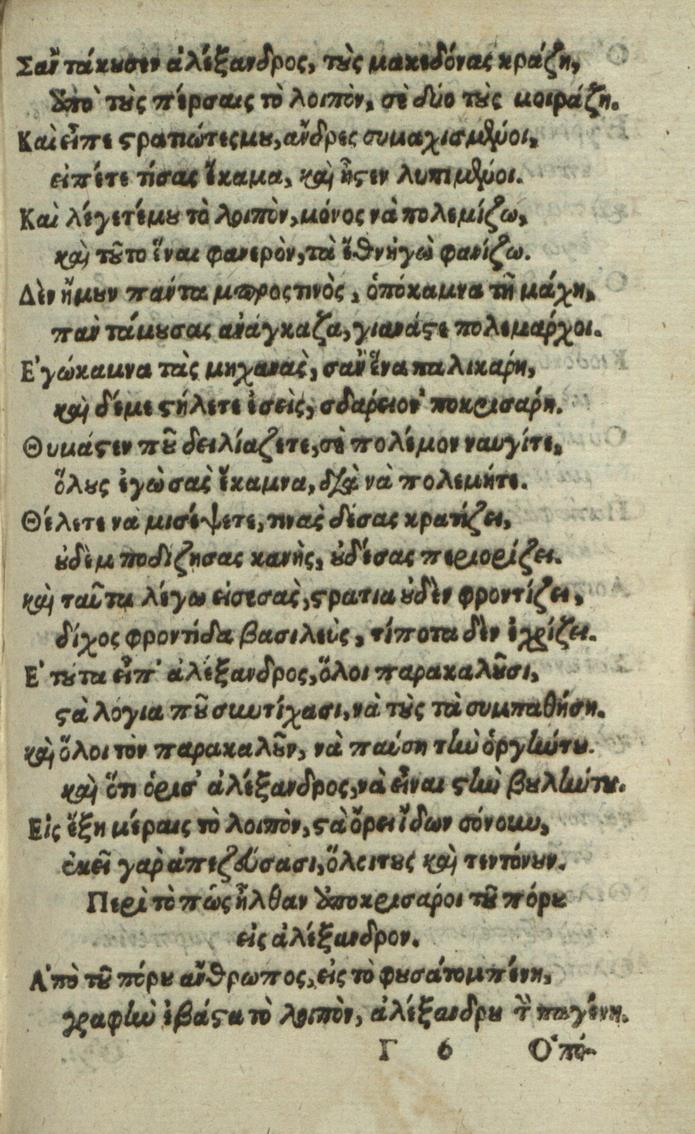 Σαν τάκουσεν ἀλέξανδρος, τοὺς μακεδόνας κράζη,
ὑπο τοὺς πέρσαις τὸ λοιπὸν, σὲ δύο τοὺς μοιράζη.
Καὶ εἶπε στρατιώτεςμου, ἄνδρες συμαχισμένοι,
εἰπέτε τίσας ἔκαμα, καὶ ἦστεν λυπιμένοι.
Καὶ λέγετέμου τὸ λοιπὸν, μόνος νὰ πολεμίζω,
καὶ τοῦτο ἔναι φανερὸν, τὰ ἔθνηγὼ φανίζω.
Δὲν ἤμουν πάντα μπροςτινὸς, ὁπόκαμνα τῆ μάχη,
παντάμουσας ἀνάγκαζα, γιανάστε πολεμάρχοι.
Ε᾽γώκαμνα τὰς μηχανὰς, σὰν ἕνα παλικάρη,
καὶ δέμε στήλετε ἐσεὶς, σδαρείον ποκρισάρη.
Θυμάστεν ποῦ δειλίαζετε, σὲ πολέμον ναυγίτε,
ὅλους ἐγὼ σας ἔκαμνα, διὰ νὰ πολεμῆτε.
Θέλετε νὰ μισέψετε, τινας δέσας κρατίζει,
οὐδὲμ ποδίζησας κανὴς, οὐδέσας περιορίζει.
καὶ ταῦτα λέγω εἰσεσας, στρατια οὐδὲν φροντίζει,
δίχος φροντήδα βασιλεὺς, τίποτα δὲν ἐχρίζει.
Ε᾽τουτα εἶπ᾽ ἀλέξανδρος, ὅλοι παρακαλοῦσι,
στὰ λόγια ποῦ σιωτίχασι, νὰ τοὺς τὰ συμπαθήση.
καὶ ὅλοι τὸν παρακαλοῦν, νὰ παύση τὴν ὀργήντου.
καὶ ὅτι ὁρισ᾽ ἀλέξανδρος, νὰ εἶναι στὴν βουλήντου.
Εἰς ἕξη μέραις τὸ λοιπὸν, στὰ ὄρει ἴδων σόνουν,
ἐκεῖ γαρ ἀπεζούσασι, ὅλειτους καὶ τεντόνουν.
Περὶ τὸ πῶς ἦλθαν ὑποκρισάροι τοῦ πόρου
εἰς ἀλέξανδρον.
Α᾽πὸ τοῦ πόρου ἄνθρωπος, εἰς τὸ φυσάτομπένη,
γραφὴν ἐβάστα τὸ λοιπὸν, ἀλέξανδρου τὴν παγένη.
Γ 6 Ο᾽πό-